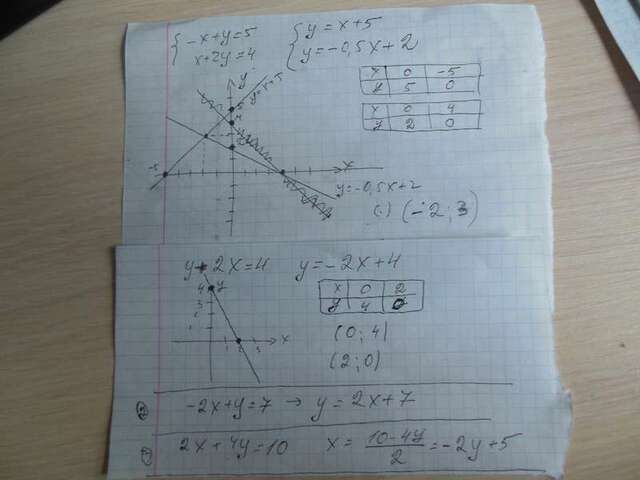 { -x+y=5   { y=x+5
x+2y=4   y=-0,5x+2
y   y=x+5
x | 0 | -5
y | 5 | 0
x | 0 | 4
y | 2 | 0
5
4
-5
x
y=-0,5x+2
(·) (-2; 3)
y+2x=4   y=-2x+4
4 y
3
x | 0 | 2
y | 4 | 0
1 2 3 x
(0; 4)
(2; 0)
-2x+y=7 → y=2x+7
2x+4y=10   x= 10-4y/2 =-2y+5